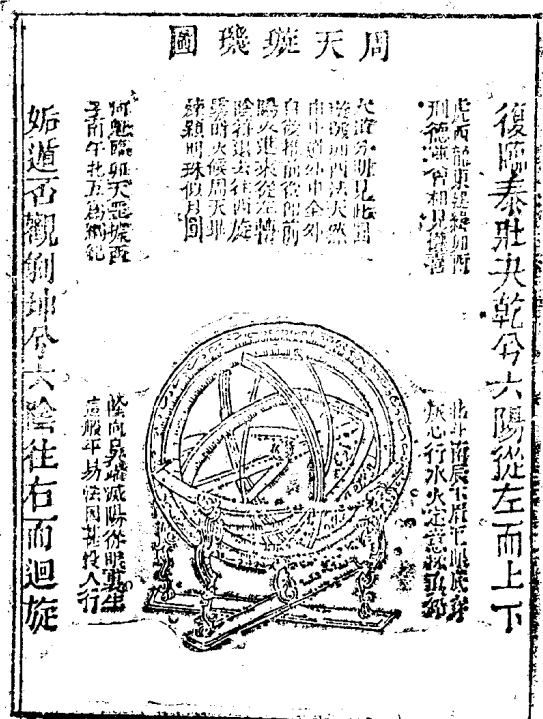 周天璇璣圖
復臨泰壯夬乾兮六陽從左而上下
虎西龍東建緯卯酉
刑德並會相見懽喜
北斗南辰下眉毛眼底穿
灰心行水火定意採真鉛
分明見此圖
法天然
由中達外中金外
自後推前後即前
陽火進來從左轉
陰符退去往西旋
霎時火候周天畢
煉顆明珠似月圓
河魁臨卯天罡據酉
子南午北互為綱紀
陰向鼻端滅陽從眼裏生
這般平易法因甚沒人行
姤遯否觀剝坤兮六陰往右而迴旋